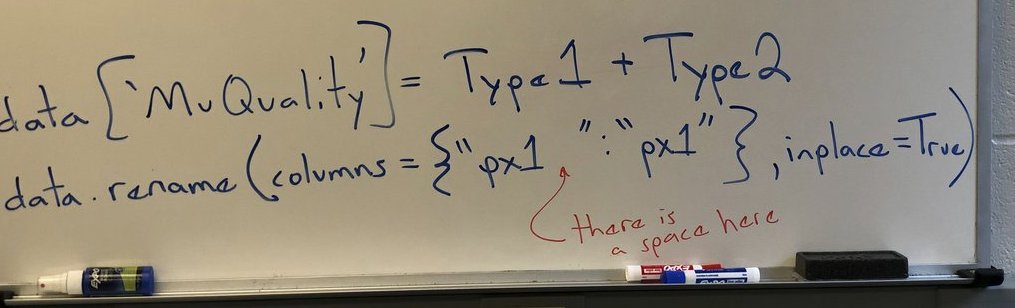 data['MuQuality'] = Type1 + Type2
data.rename(columns = {"px1 ":"px1"}, inplace=True)
there is
a space here
EXPO